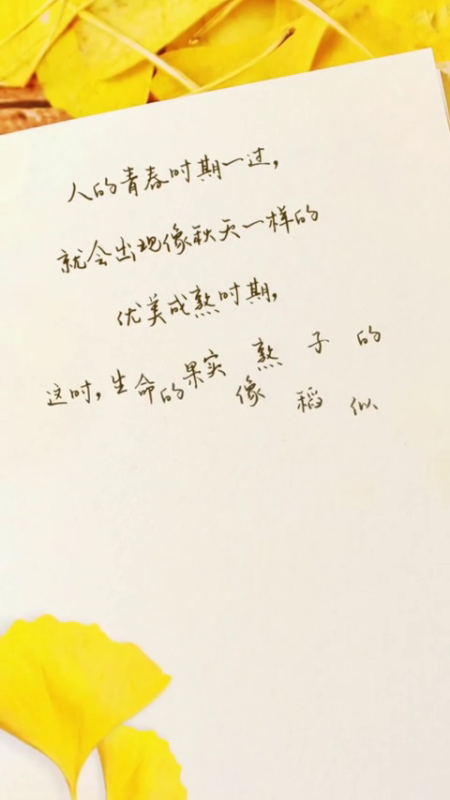 人的青春时期一过,
就会出现像秋天一样的
优美成熟时期,
这时,生命的果实像熟稻子似的